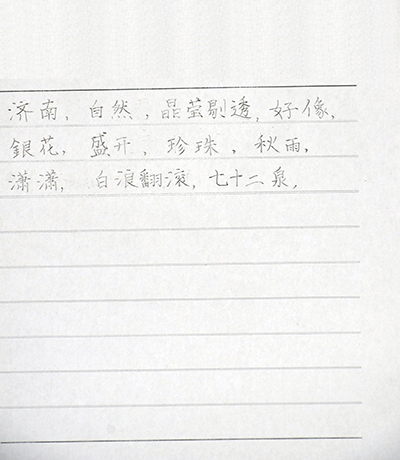 济南，自然，晶莹剔透，好像，
銀花，盛开，珍珠，秋雨，
潇潇，白浪翻滚，七十二泉，